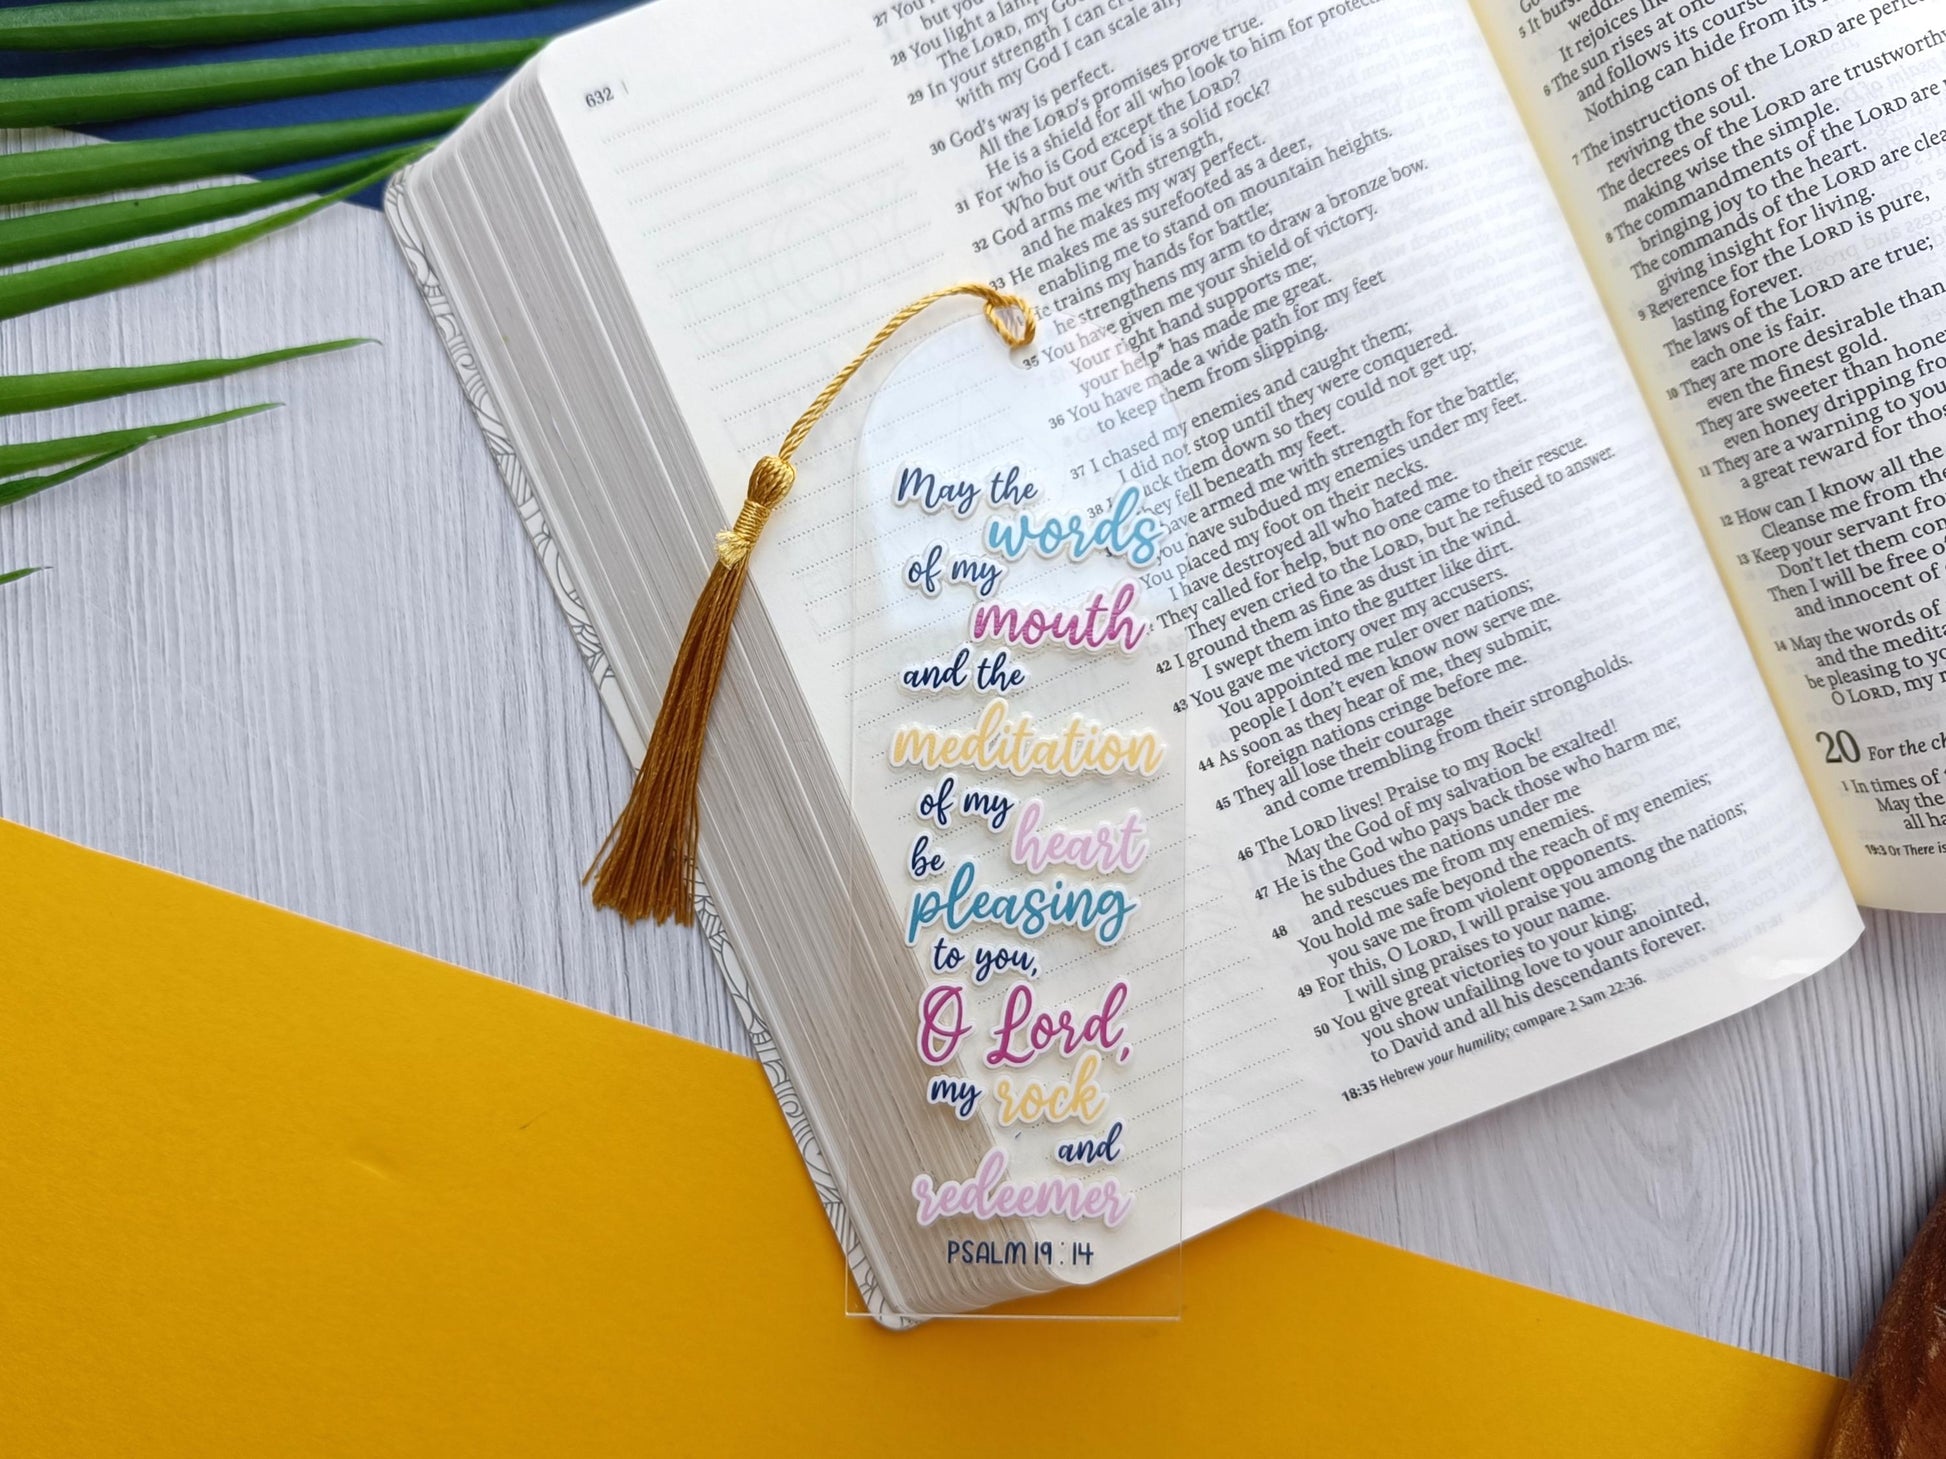 632
27 You
but you
28 You light a lamp
The LORD, my Go
29 In your strength I can cr
with my God I can scale any
30 God's way is perfect.
All the LORD's promises prove true.
He is a shield for all who look to him for protec
31 For who is God except the LORD?
Who but our God is a solid rock?
32 God arms me with strength,
and he makes my way perfect.
33 He makes me as surefooted as a deer,
enabling me to stand on mountain heights.
He trains my hands for battle;
he strengthens my arm to draw a bronze bow.
35 You have given me your shield of victory.
Your right hand supports me;
your help* has made me great.
36 You have made a wide path for my feet
to keep them from slipping.
37 I chased my enemies and caught them;
I did not stop until they were conquered.
38 I uck them down so they could not get up;
hey fell beneath my feet.
have armed me with strength for the battle;
you have subdued my enemies under my feet.
You placed my foot on their necks.
I have destroyed all who hated me.
They called for help, but no one came to their rescue.
They even cried to the LORD, but he refused to answer.
42 I ground them as fine as dust in the wind.
I swept them into the gutter like dirt.
43 You gave me victory over my accusers.
You appointed me ruler over nations;
people I don't even know now serve me.
44 As soon as they hear of me, they submit;
foreign nations cringe before me.
45 They all lose their courage
and come trembling from their strongholds.
46 The LORD lives! Praise to my Rock!
May the God of my salvation be exalted!
47 He is the God who pays back those who harm me;
he subdues the nations under me
48 and rescues me from my enemies.
You hold me safe beyond the reach of my enemies;
you save me from violent opponents.
49 For this, O LORD, I will praise you among the nations;
I will sing praises to your name.
50 You give great victories to your king;
you show unfailing love to your anointed,
to David and all his descendants forever.
18:35 Hebrew your humility; compare 2 Sam 22:36.
May the
words
of my
mouth
and the
meditation
of my
heart
be
pleasing
to you,
O Lord,
my rock
and
redeemer
PSALM 19:14
5 It burst
wedd
It rejoices lik
6 The sun rises at one
and follows its course
Nothing can hide from its
7 The instructions of the LORD are perfe
reviving the soul.
The decrees of the LORD are trustworthy
making wise the simple.
8 The commandments of the LORD are
bringing joy to the heart.
The commands of the LORD are clea
giving insight for living.
9 Reverence for the LORD is pure,
lasting forever.
The laws of the LORD are true;
each one is fair.
10 They are more desirable than
even the finest gold.
They are sweeter than hone
even honey dripping fro
11 They are a warning to you
a great reward for thos
12 How can I know all the
Cleanse me from the
13 Keep your servant fro
Don't let them con
Then I will be free of
and innocent of
14 May the words of
and the medita
be pleasing to yo
O LORD, my r
20 For the ch
1 In times of
May the
all ha
19:3 Or There is